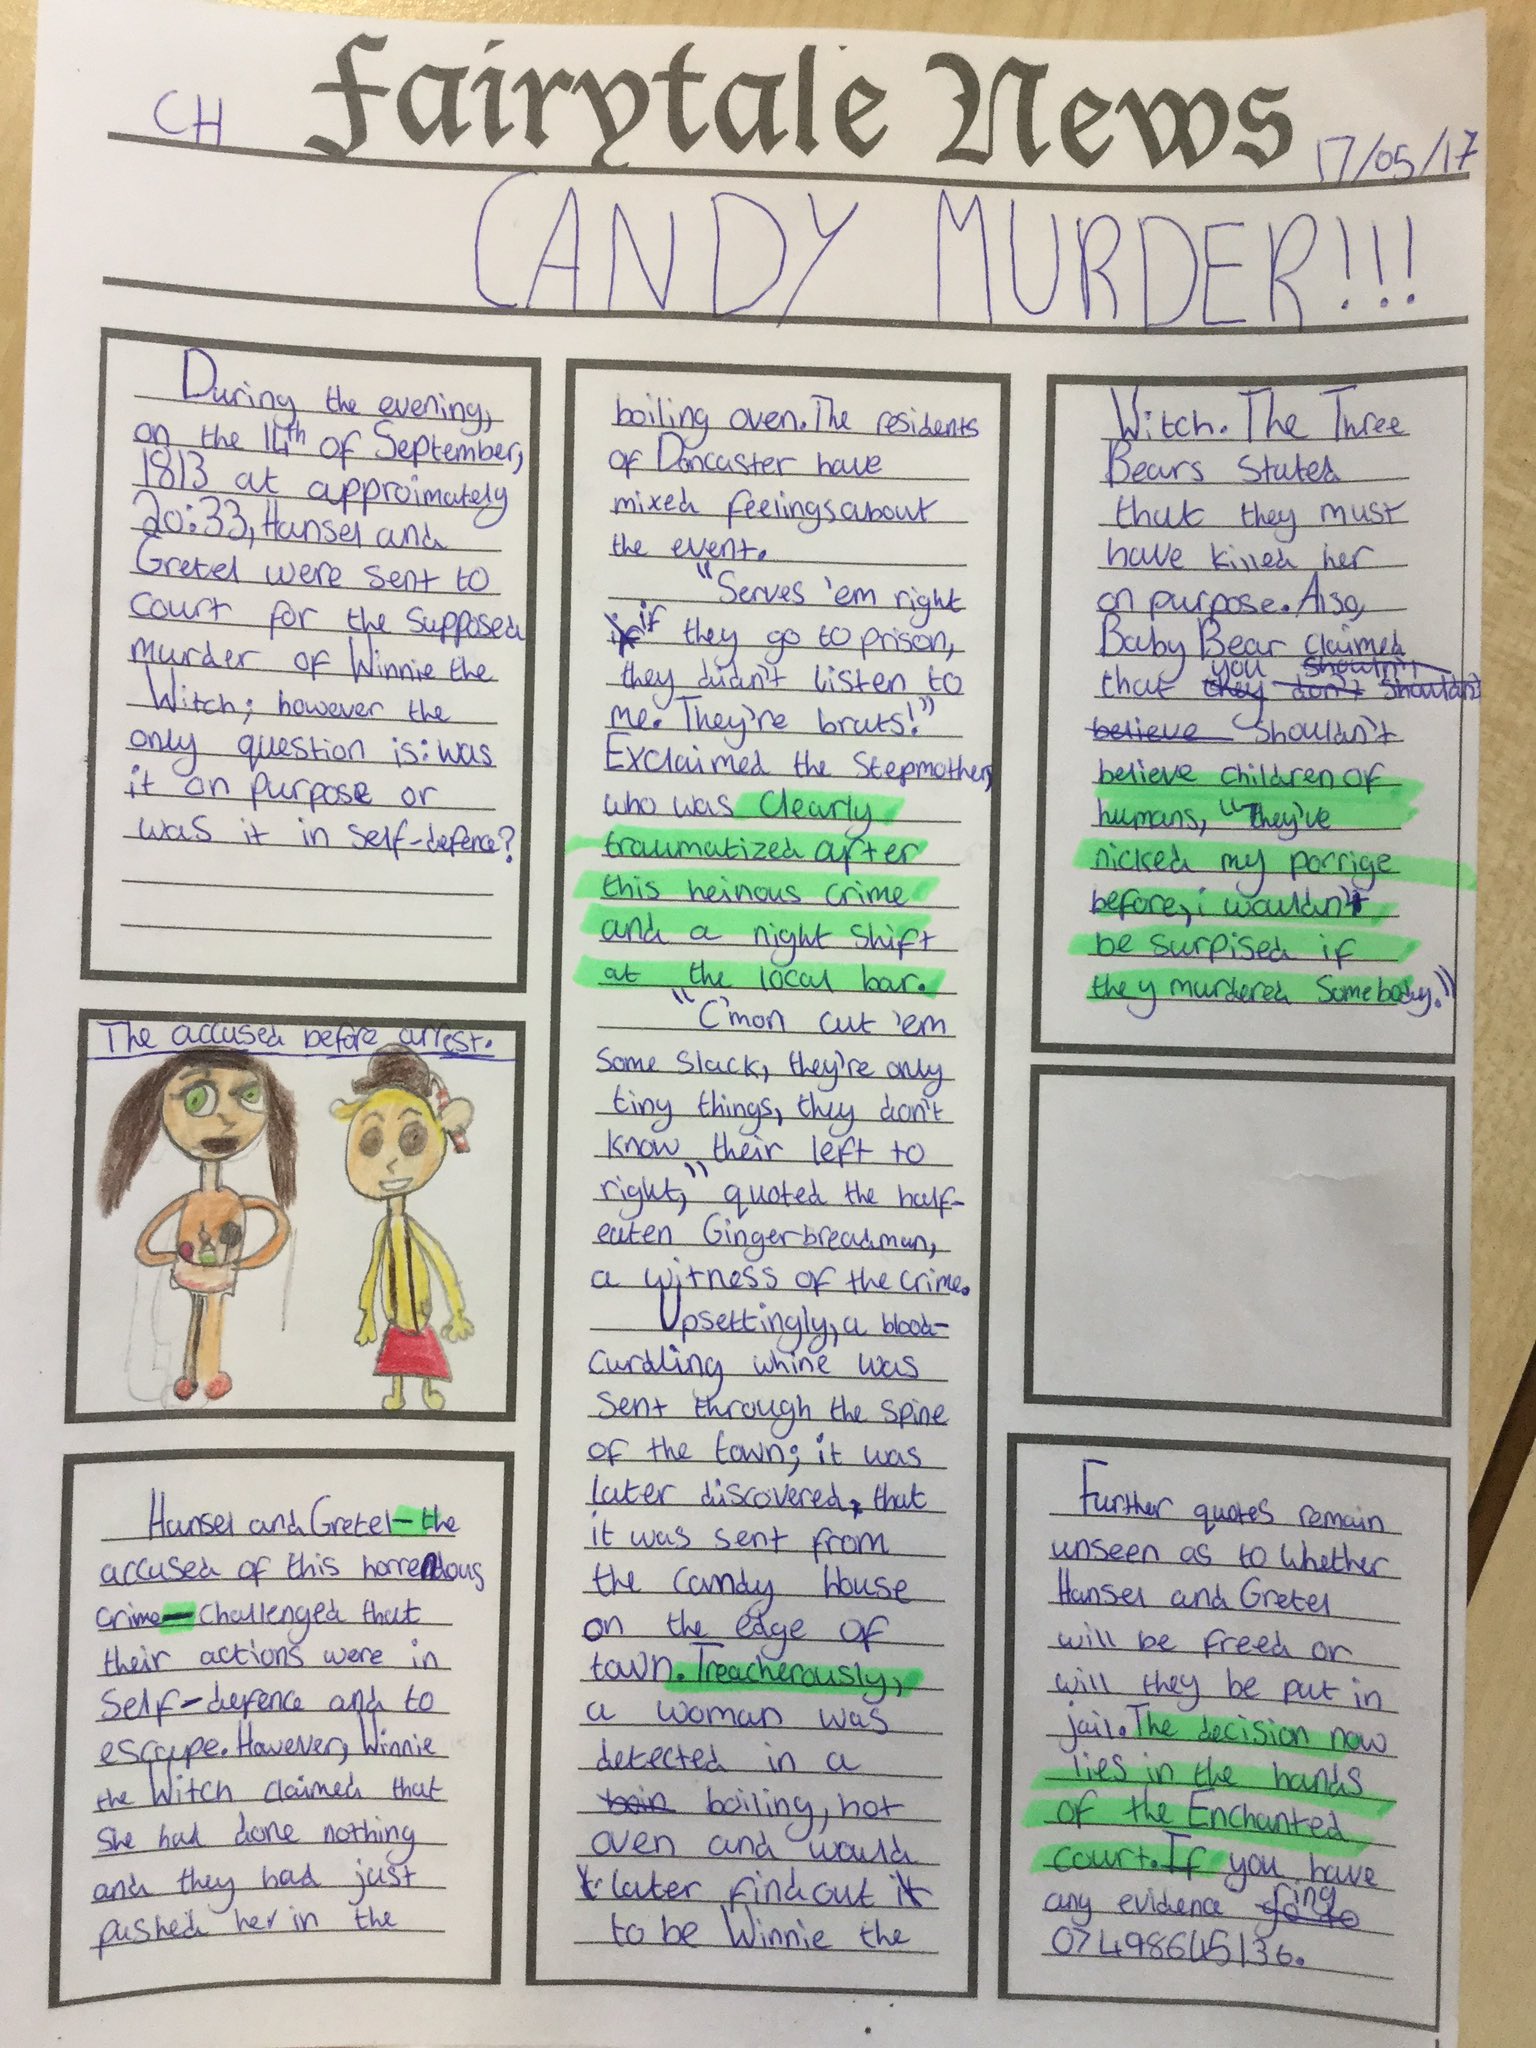 CH
Fairytale News
17/05/17
CANDY MURDER!!!
During the evening,
on the 14th of September,
1813 at approimately
20:33, Hansel and
Gretel were sent to
court for the supposed
murder of Winnie the
Witch; however the
only question is: was
it on purpose or
was it in self-defence?
The accused before arrest.
Hansel and Gretel - the
accused of this horrendous
crime - challenged that
their actions were in
self-defence and to
escape. However, Winnie
the Witch claimed that
she had done nothing
and they had just
pushed her in the
boiling oven. The residents
of Doncaster have
mixed feelings about
the event.
"Serves 'em right
if they go to prison,
they didn't listen to
me. They're bruts!"
Exclaimed the Stepmother,
who was clearly
traumatized after
this heinous crime
and a night shift
at the local bar.
"C'mon cut 'em
some slack, they're only
tiny things, they don't
know their left to
right," quoted the half-
eaten Gingerbreadman,
a witness of the crime.
Upsettingly, a blood-
curdling whine was
sent through the spine
of the town; it was
later discovered, that
it was sent from
the candy house
on the edge of
town. Treacherously,
a woman was
detected in a
boiling, hot
oven and would
later find out it
to be Winnie the
Witch. The Three
Bears stated
that they must
have killed her
on purpose. Also,
Baby Bear claimed
that you
shouldn't
believe children of
humans, "They've
nicked my porrige
before, i wouldn't
be surpised if
they murdered somebody."
Further quotes remain
unseen as to whether
Hansel and Gretel
will be freed or
will they be put in
jail. The decision now
lies in the hands
of the Enchanted
court. If you have
any evidence ring
07498645136.